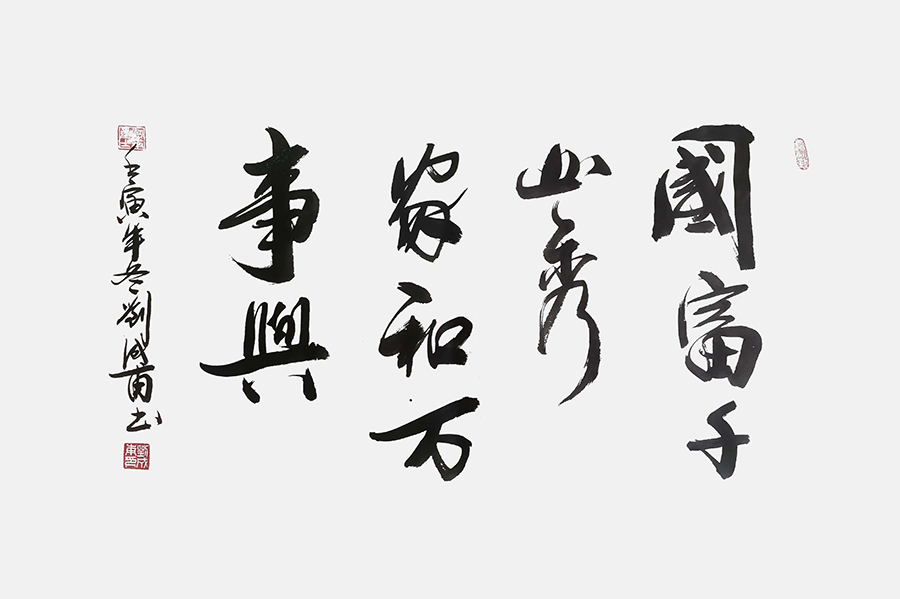 國富千
山秀
家和万
事興
壬寅年冬劉成书